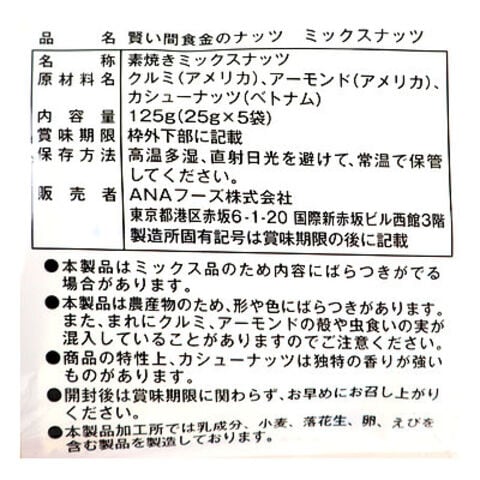 品　　名　賢い間食金のナッツ　ミックスナッツ
名　　称　素焼きミックスナッツ
原材料名　クルミ(アメリカ)、アーモンド(アメリカ)、
カシューナッツ(ベトナム)
内 容 量　125g(25g×5袋)
賞味期限　枠外下部に記載
保存方法　高温多湿、直射日光を避けて、常温で保管
してください。
販 売 者　ANAフーズ株式会社
東京都港区赤坂6-1-20 国際新赤坂ビル西館3階
製造所固有記号は賞味期限の後に記載
●本製品はミックス品のため内容にばらつきがでる
場合があります。
●本製品は農産物のため、形や色にばらつきがあります。
また、まれにクルミ、アーモンドの殻や虫食いの実が
混入していることがありますのでご注意ください。
●商品の特性上、カシューナッツは独特の香りが強い
ものがあります。
●開封後は賞味期限に関わらず、お早めにお召し上がり
ください。
●本製品加工所では乳成分、小麦、落花生、卵、えびを
含む製品を製造しております。